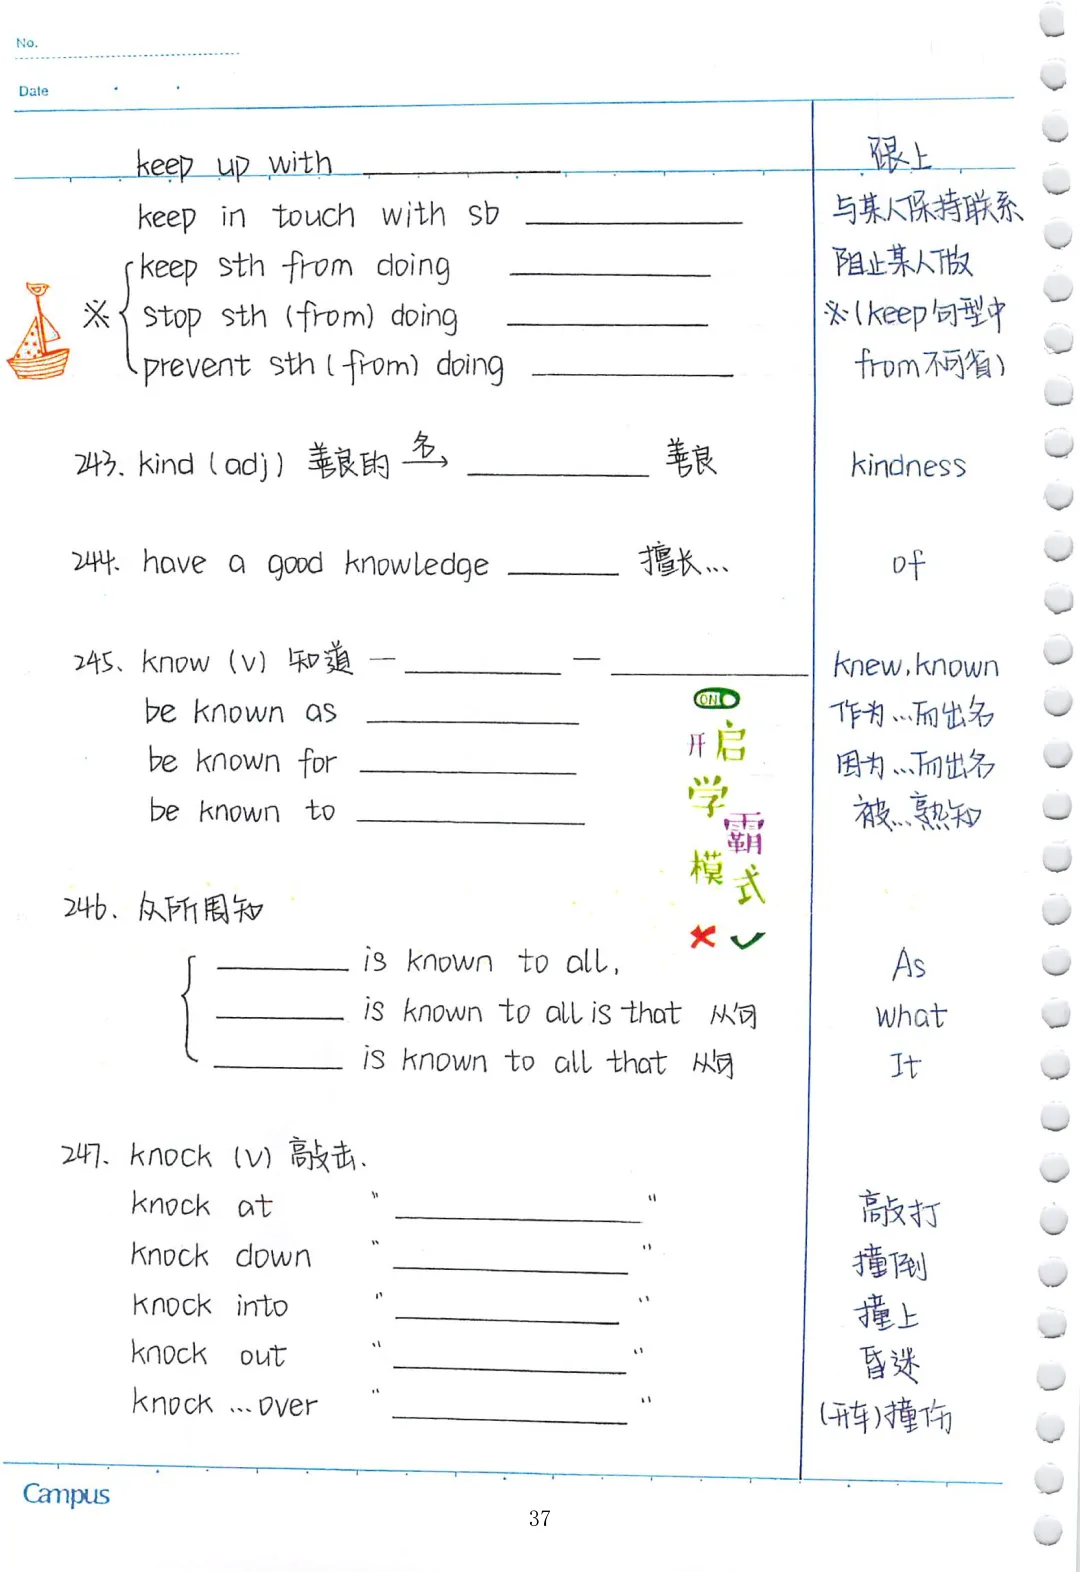 No.
Date
keep up with ____________ 跟上
keep in touch with sb ____________ 与某人保持联系
keep sth from doing ____________ 阻止某人做
※ { stop sth (from) doing ____________ ※(keep句型中
prevent sth (from) doing ____________ from不可省)
243. kind (adj) 善良的 名→ ____________ 善良 kindness
244. have a good knowledge ________ 擅长... of
245. know (v) 知道 — ____________ — ____________ knew, known
be known as ____________ 作为...而出名
be known for ____________ 因为...而出名
be known to ____________ 被...熟知
ON
开启
学霸
模式
246. 众所周知
________ is known to all, As
________ is known to all is that 从句 what
________ is known to all that 从句 It
247. knock (v) 敲击.
knock at " ____________ " 敲打
knock down " ____________ " 撞倒
knock into " ____________ " 撞上
knock out " ____________ " 昏迷
knock ...over " ____________ " (开车)撞伤
Campus
37